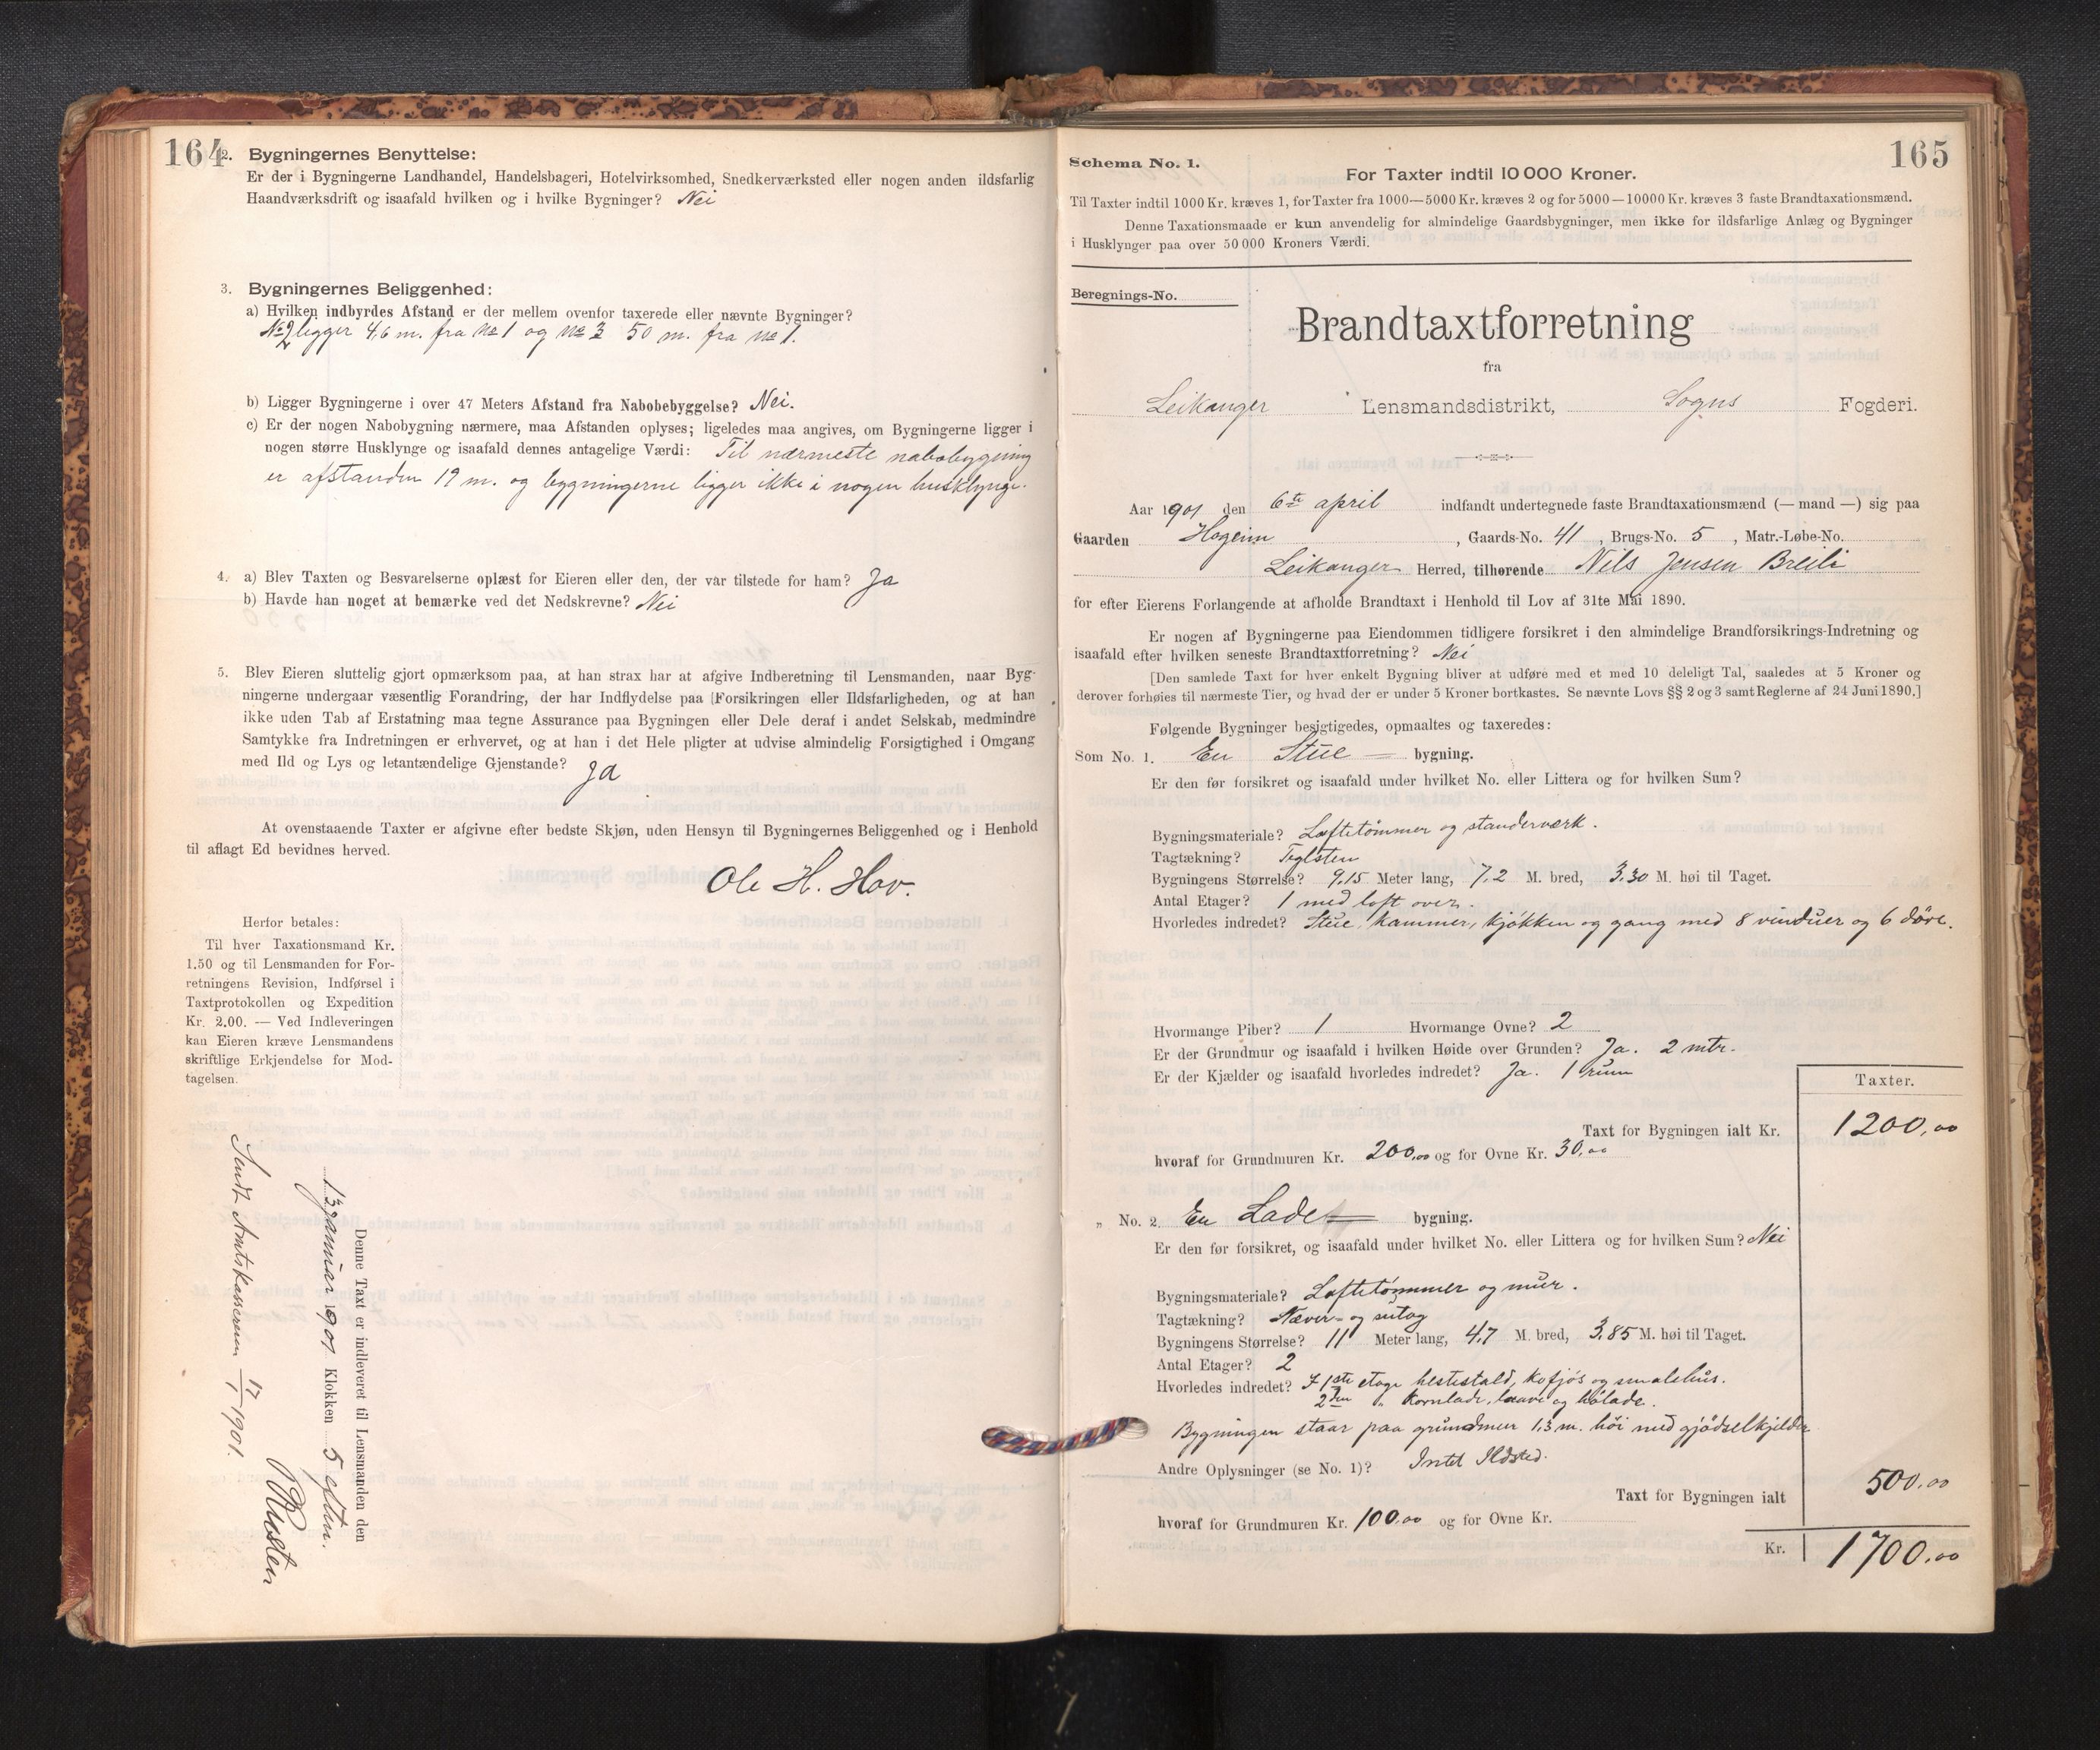 164
2. Bygningernes Benyttelse:
Er der i Bygningerne Landhandel, Handelsbageri, Hotelvirksomhed, Snedkerværksted eller nogen anden ildsfarlig
Haandværksdrift og isaafald hvilken og i hvilke Bygninger? Nei
3. Bygningernes Beliggenhed:
a) Hvilken indbyrdes Afstand er der mellem ovenfor taxerede eller nævnte Bygninger?
No 2 ligger 46 m. fra No 1 og No 3 50 m. fra No 1.
b) Ligger Bygningerne i over 47 Meters Afstand fra Nabobebyggelse? Nei.
c) Er der nogen Nabobygning nærmere, maa Afstanden oplyses; ligeledes maa angives, om Bygningerne ligger i
nogen større Husklynge og isaafald dennes antagelige Værdi: Til nærmeste nabobygning
er afstanden 19 m. og bygningerne ligger ikke i nogen husklynge.
4. a) Blev Taxten og Besvarelserne oplæst for Eieren eller den, der var tilstede for ham? Ja
b) Havde han noget at bemærke ved det Nedskrevne? Nei
5. Blev Eieren sluttelig gjort opmærksom paa, at han strax har at afgive Indberetning til Lensmanden, naar Byg-
ningerne undergaar væsentlig Forandring, der har Indflydelse paa Forsikringen eller Ildsfarligheden, og at han
ikke uden Tab af Erstatning maa tegne Assurance paa Bygningen eller Dele deraf i andet Selskab, medmindre
Samtykke fra Indretningen er erhvervet, og at han i det Hele pligter at udvise almindelig Forsigtighed i Omgang
med Ild og Lys og letantændelige Gjenstande? Ja
At ovenstaaende Taxter er afgivne efter bedste Skjøn, uden Hensyn til Bygningernes Beliggenhed og i Henhold
til aflagt Ed bevidnes herved.
Ole H. Hov.
Herfor betales:
Til hver Taxationsmand Kr.
1.50 og til Lensmanden for For-
retningens Revision, Indførsel i
Taxtprotokollen og Expedition
Kr. 2.00. — Ved Indleveringen
kan Eieren kræve Lensmandens
skriftlige Erkjendelse for Mod-
tagelsen.
Denne Taxt er indleveret til Lensmanden den
13 januar 1901 Klokken 5 eftm.
Sendt Amtskassereren 17/1 1901.
165
Schema No. 1.
For Taxter indtil 10 000 Kroner.
Til Taxter indtil 1000 Kr. kræves 1, for Taxter fra 1000—5000 Kr. kræves 2 og for 5000—10000 Kr. kræves 3 faste Brandtaxationsmænd.
Denne Taxationsmaade er kun anvendelig for almindelige Gaardsbygninger, men ikke for ildsfarlige Anlæg og Bygninger
i Husklynger paa over 50 000 Kroners Værdi.
Beregnings-No.
Brandtaxtforretning
fra
Leikanger Lensmandsdistrikt, Sogns Fogderi.
Aar 1901 den 6te april indfandt undertegnede faste Brandtaxationsmænd (— mand —) sig paa
Gaarden Hageim, Gaards-No. 41, Brugs-No. 5, Matr.-Løbe-No.
Leikanger Herred, tilhørende Nils Jensen Breili
for efter Eierens Forlangende at afholde Brandtaxt i Henhold til Lov af 31te Mai 1890.
Er nogen af Bygningerne paa Eiendommen tidligere forsikret i den almindelige Brandforsikrings-Indretning og
isaafald efter hvilken seneste Brandtaxtforretning? Nei
[Den samlede Taxt for hver enkelt Bygning bliver at udføre med et med 10 deleligt Tal, saaledes at 5 Kroner og
derover forhøies til nærmeste Tier, og hvad der er under 5 Kroner bortkastes. Se nævnte Lovs §§ 2 og 3 samt Reglerne af 24 Juni 1890.]
Følgende Bygninger besigtigedes, opmaaltes og taxeredes:
Som No. 1. En Stue bygning.
Er den før forsikret og isaafald under hvilket No. eller Littera og for hvilken Sum?
Bygningsmateriale? Laftetømmer og standerværk.
Tagtækning? Teglsten
Bygningens Størrelse? 9,15 Meter lang, 7.2 M. bred, 3.30 M. høi til Taget.
Antal Etager? 1 med loft over.
Hvorledes indredet? Stue, kammer, kjøkken og gang med 8 vinduer og 6 døre.
Hvormange Piber? 1 Hvormange Ovne? 2
Er der Grundmur og isaafald i hvilken Høide over Grunden? Ja. 2 mtr.
Er der Kjælder og isaafald hvorledes indredet? Ja. 1 rum
Taxter.
Taxt for Bygningen ialt Kr. 1200,00
hvoraf for Grundmuren Kr. 200,00 og for Ovne Kr. 30,00
„ No. 2. En Lade bygning.
Er den før forsikret, og isaafald under hvilket No. eller Littera og for hvilken Sum? Nei
Bygningsmateriale? Laftetømmer og mur.
Tagtækning? Næver- og sutag
Bygningens Størrelse? 11 Meter lang, 4,7 M. bred, 3.85 M. høi til Taget.
Antal Etager? 2
Hvorledes indredet? I 1ste etage hestestald, kofjøs og smalehus.
2den " Kornlade, laave og hølade.
Bygningen staar paa grundmur 1,3 m. høi med gjødselkjelder
Andre Oplysninger (se No. 1)? Intet Ildsted.
Taxt for Bygningen ialt 500,00
hvoraf for Grundmuren Kr. 100,00 og for Ovne Kr.
Kr. 1700,00